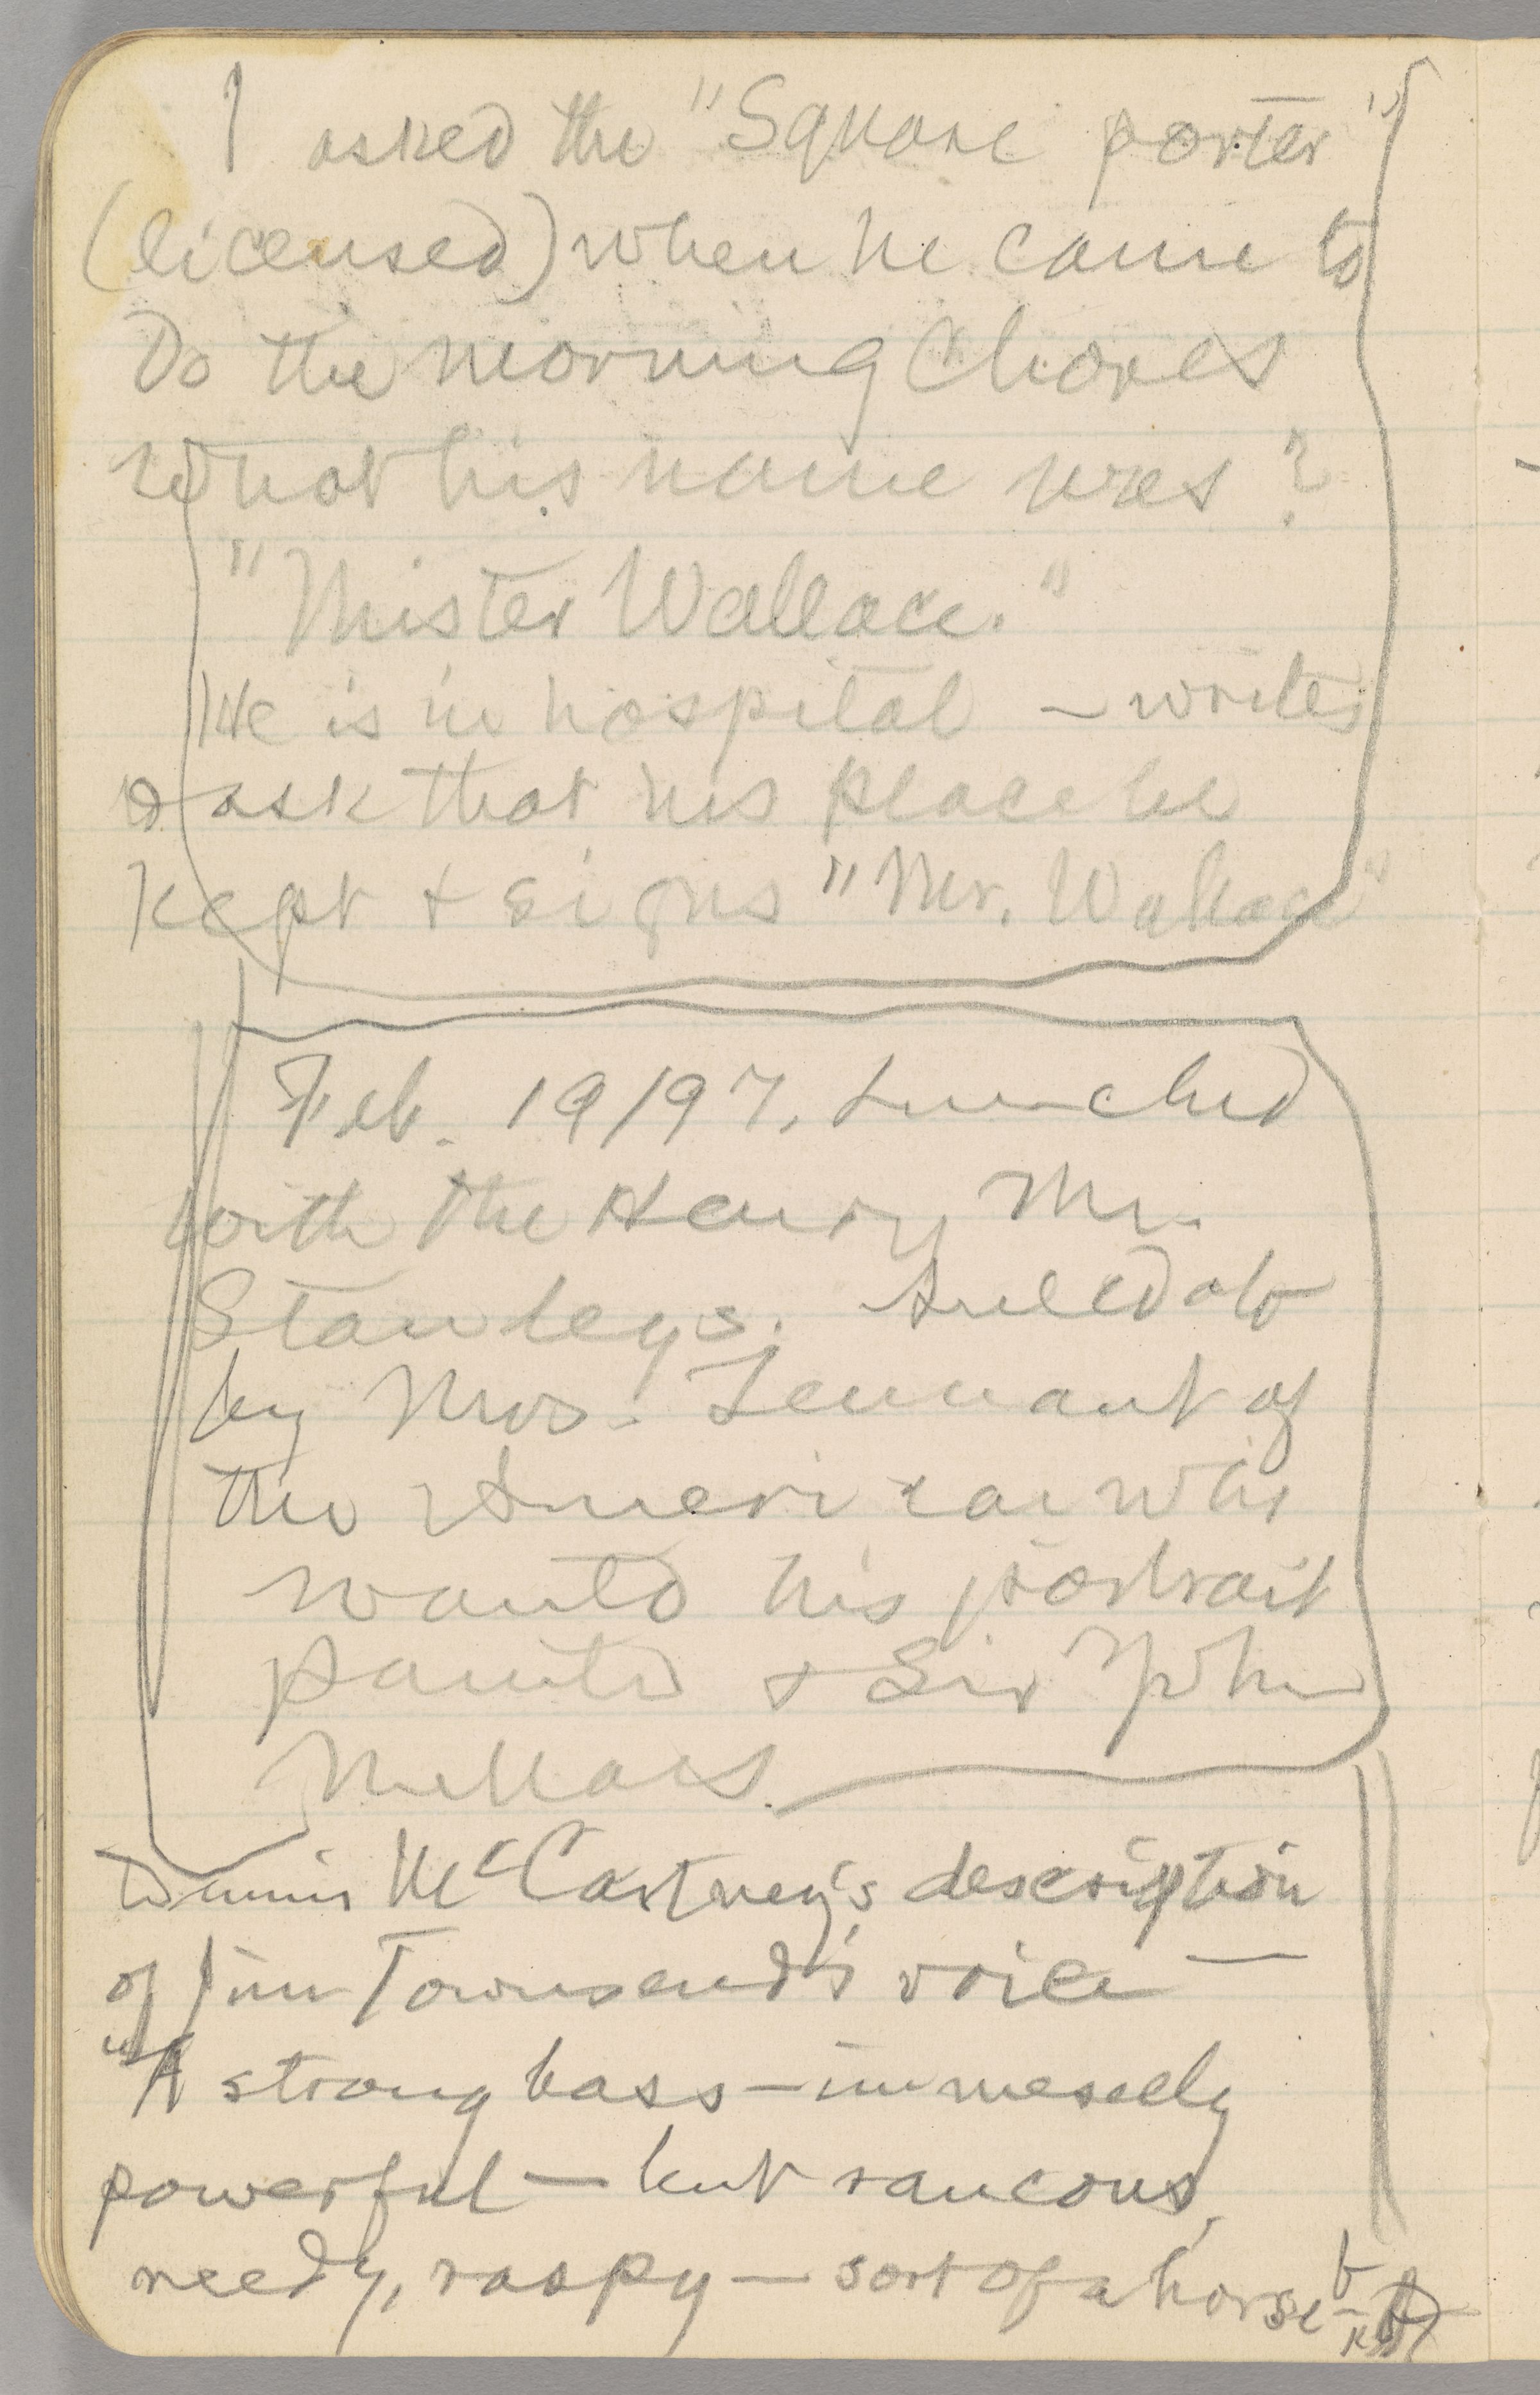 I asked the "Square porter"
(licensed) when he came to
do the morning chores
what his name was?
"Mister Wallace."
He is in hospital – writes
& ask that his place be
kept & signs "Mr. Wallace"
Feb. 19/97. Lunched
with the Henry M.
Stanleys. Anecdote
by Mrs. Tennant of
the American who
wanted his portrait
painted & Sir John
Millais.
McCartney's description
of Jim Townsend's voice —
"A strong bass – immesely
powerful — but raucous,
reedy, raspy — sort of a horse-